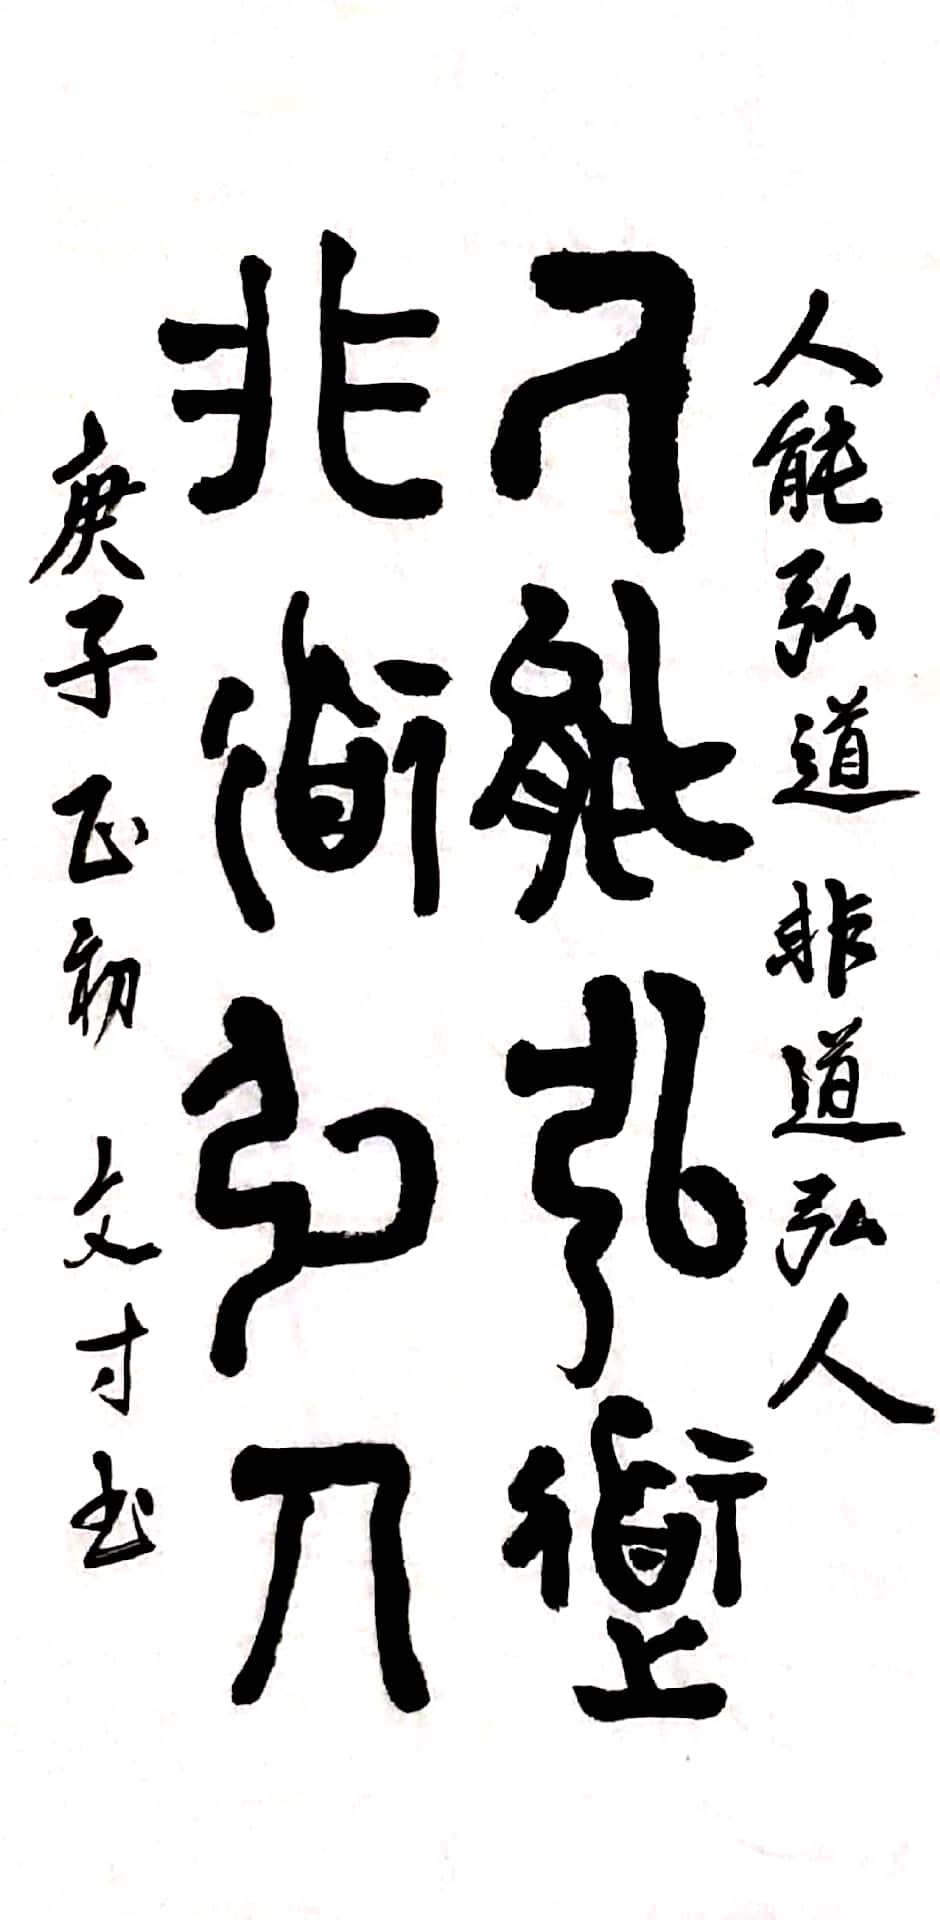 人能弘道 非道弘人
人能弘道
非道弘人
庚子正初 文寸书